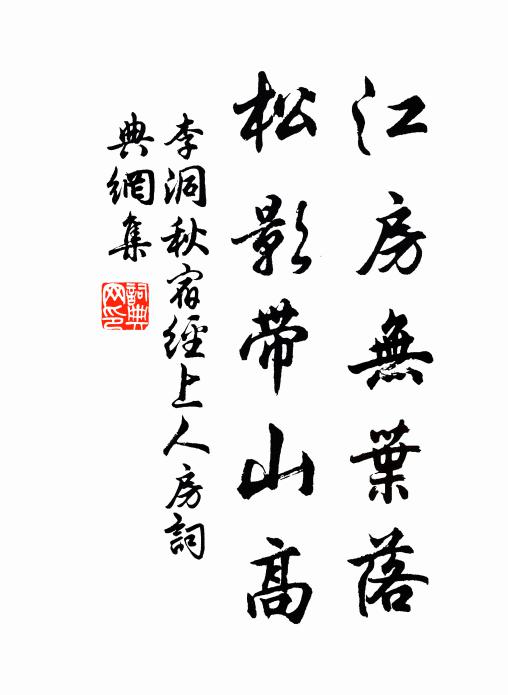 江房無葉落
松影帶山高
李洞秋宿經上人房詞
典網集
詞典網印